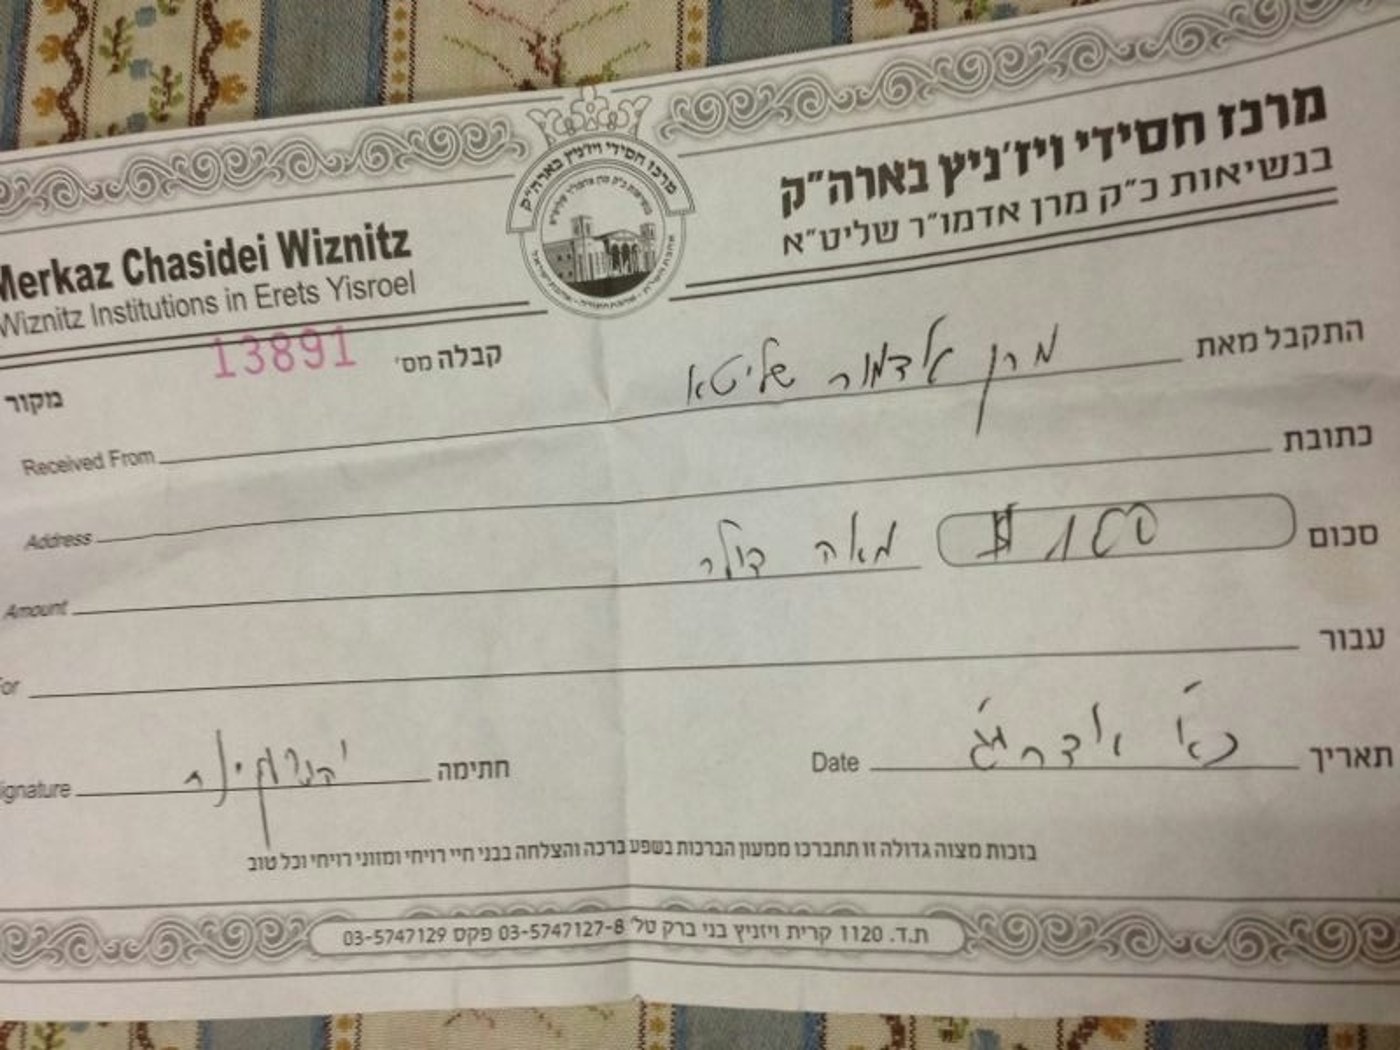 מרכז חסידי ויז'ניץ בארה"ק
בנשיאות כ"ק מרן אדמו"ר שליט"א
Merkaz Chasidei Wiznitz
Wiznitz Institutions in Erets Yisroel
מרכז חסידי ויז'ניץ בארה"ק
קבלה מס' 13891
מקור
התקבל מאת מרן אדמור שליטא Received From
כתובת Address
סכום $ 100 מאה דולר Amount
עבור For
תאריך כ"א אדר Date
חתימה Signature
בזכות מצוה גדולה זו תתברכו ממעון הברכות בשפע ברכה והצלחה בבני חיי רויחי ומזוני רויחי וכל טוב
ת.ד. 1120 קרית ויזניץ בני ברק טל' 03-5747127-8 פקס 03-5747129